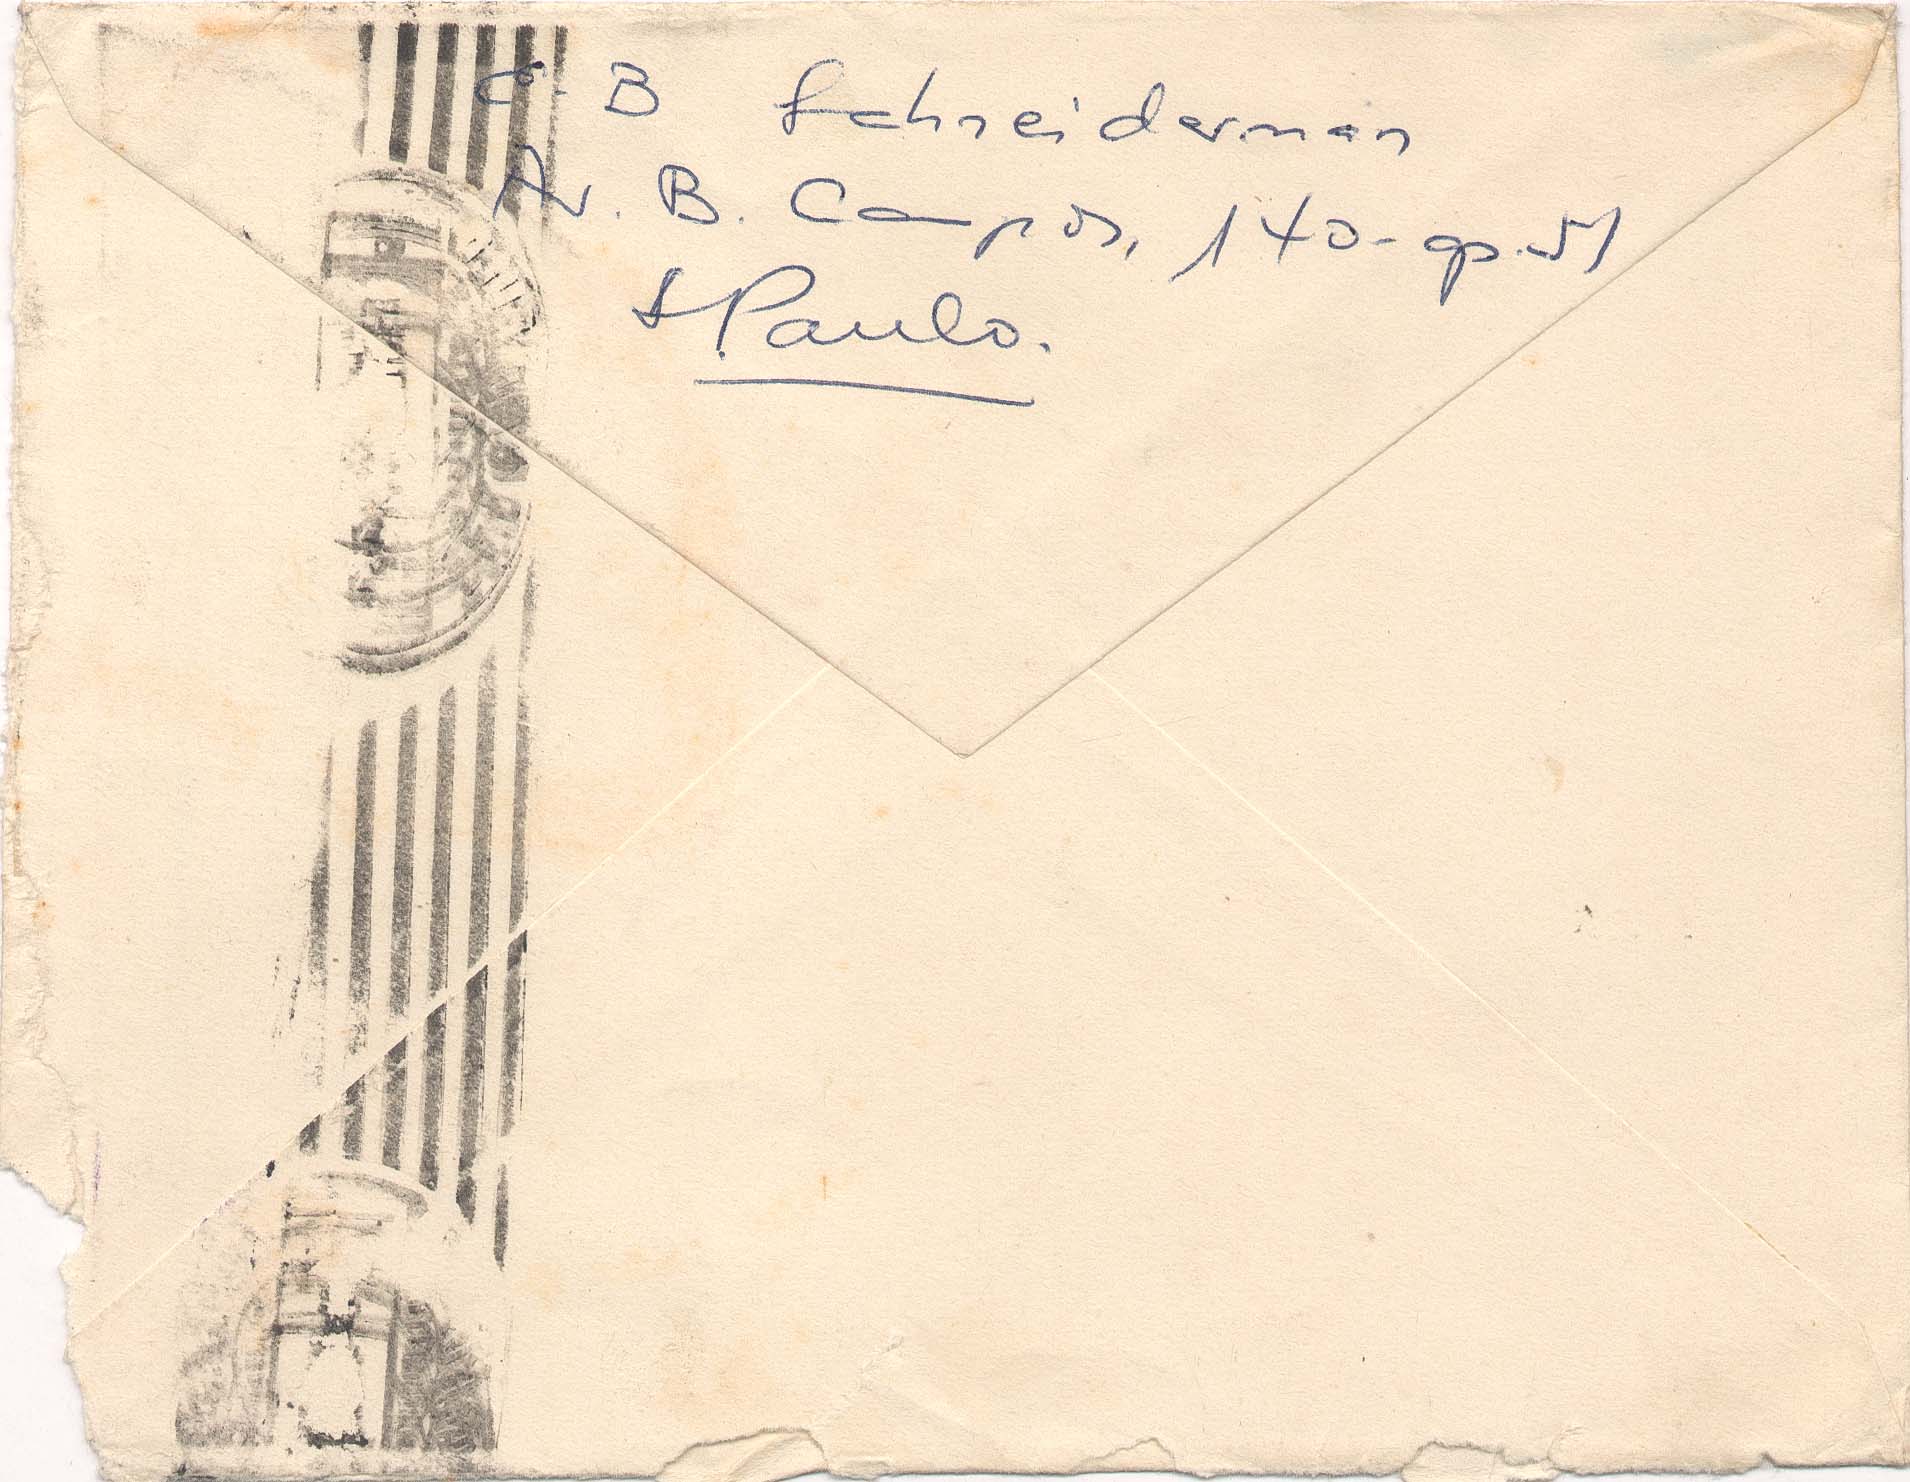 B Schneiderman
Av. B. Campos, 140 - ap. 51
S. Paulo.